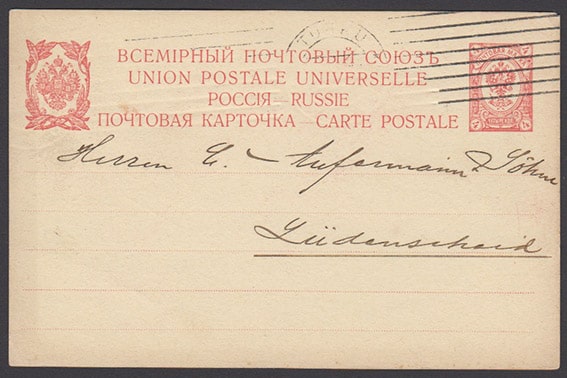 ВСЕМІРНЫЙ ПОЧТОВЫЙ СОЮЗЪ
UNION POSTALE UNIVERSELLE
РОССІЯ - RUSSIE
ПОЧТОВАЯ КАРТОЧКА - CARTE POSTALE
Herren C. Aufermann & Söhne
Lüdenscheid